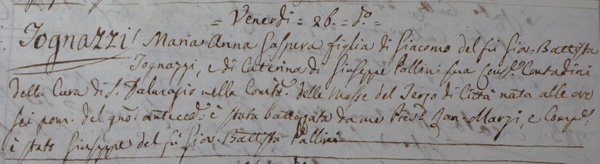 = Venerdi = 26. = d.o =
Tognazzi / Maria Anna Gaspera figlia di Giacomo del fù Gio: Battista
Tognazzi, e di Caterina di Giuseppe Pallini sua Cons.e Contadini
della Cura di S. Dalmazio nella Comtà delle Masse del Terzo di Città nata alle ore
sei pom. del gno: anteced.e è stata battezzata da me Jan. Marzi, e Comp.e
è stato Giuseppe del fù Gio: Battista Pallini